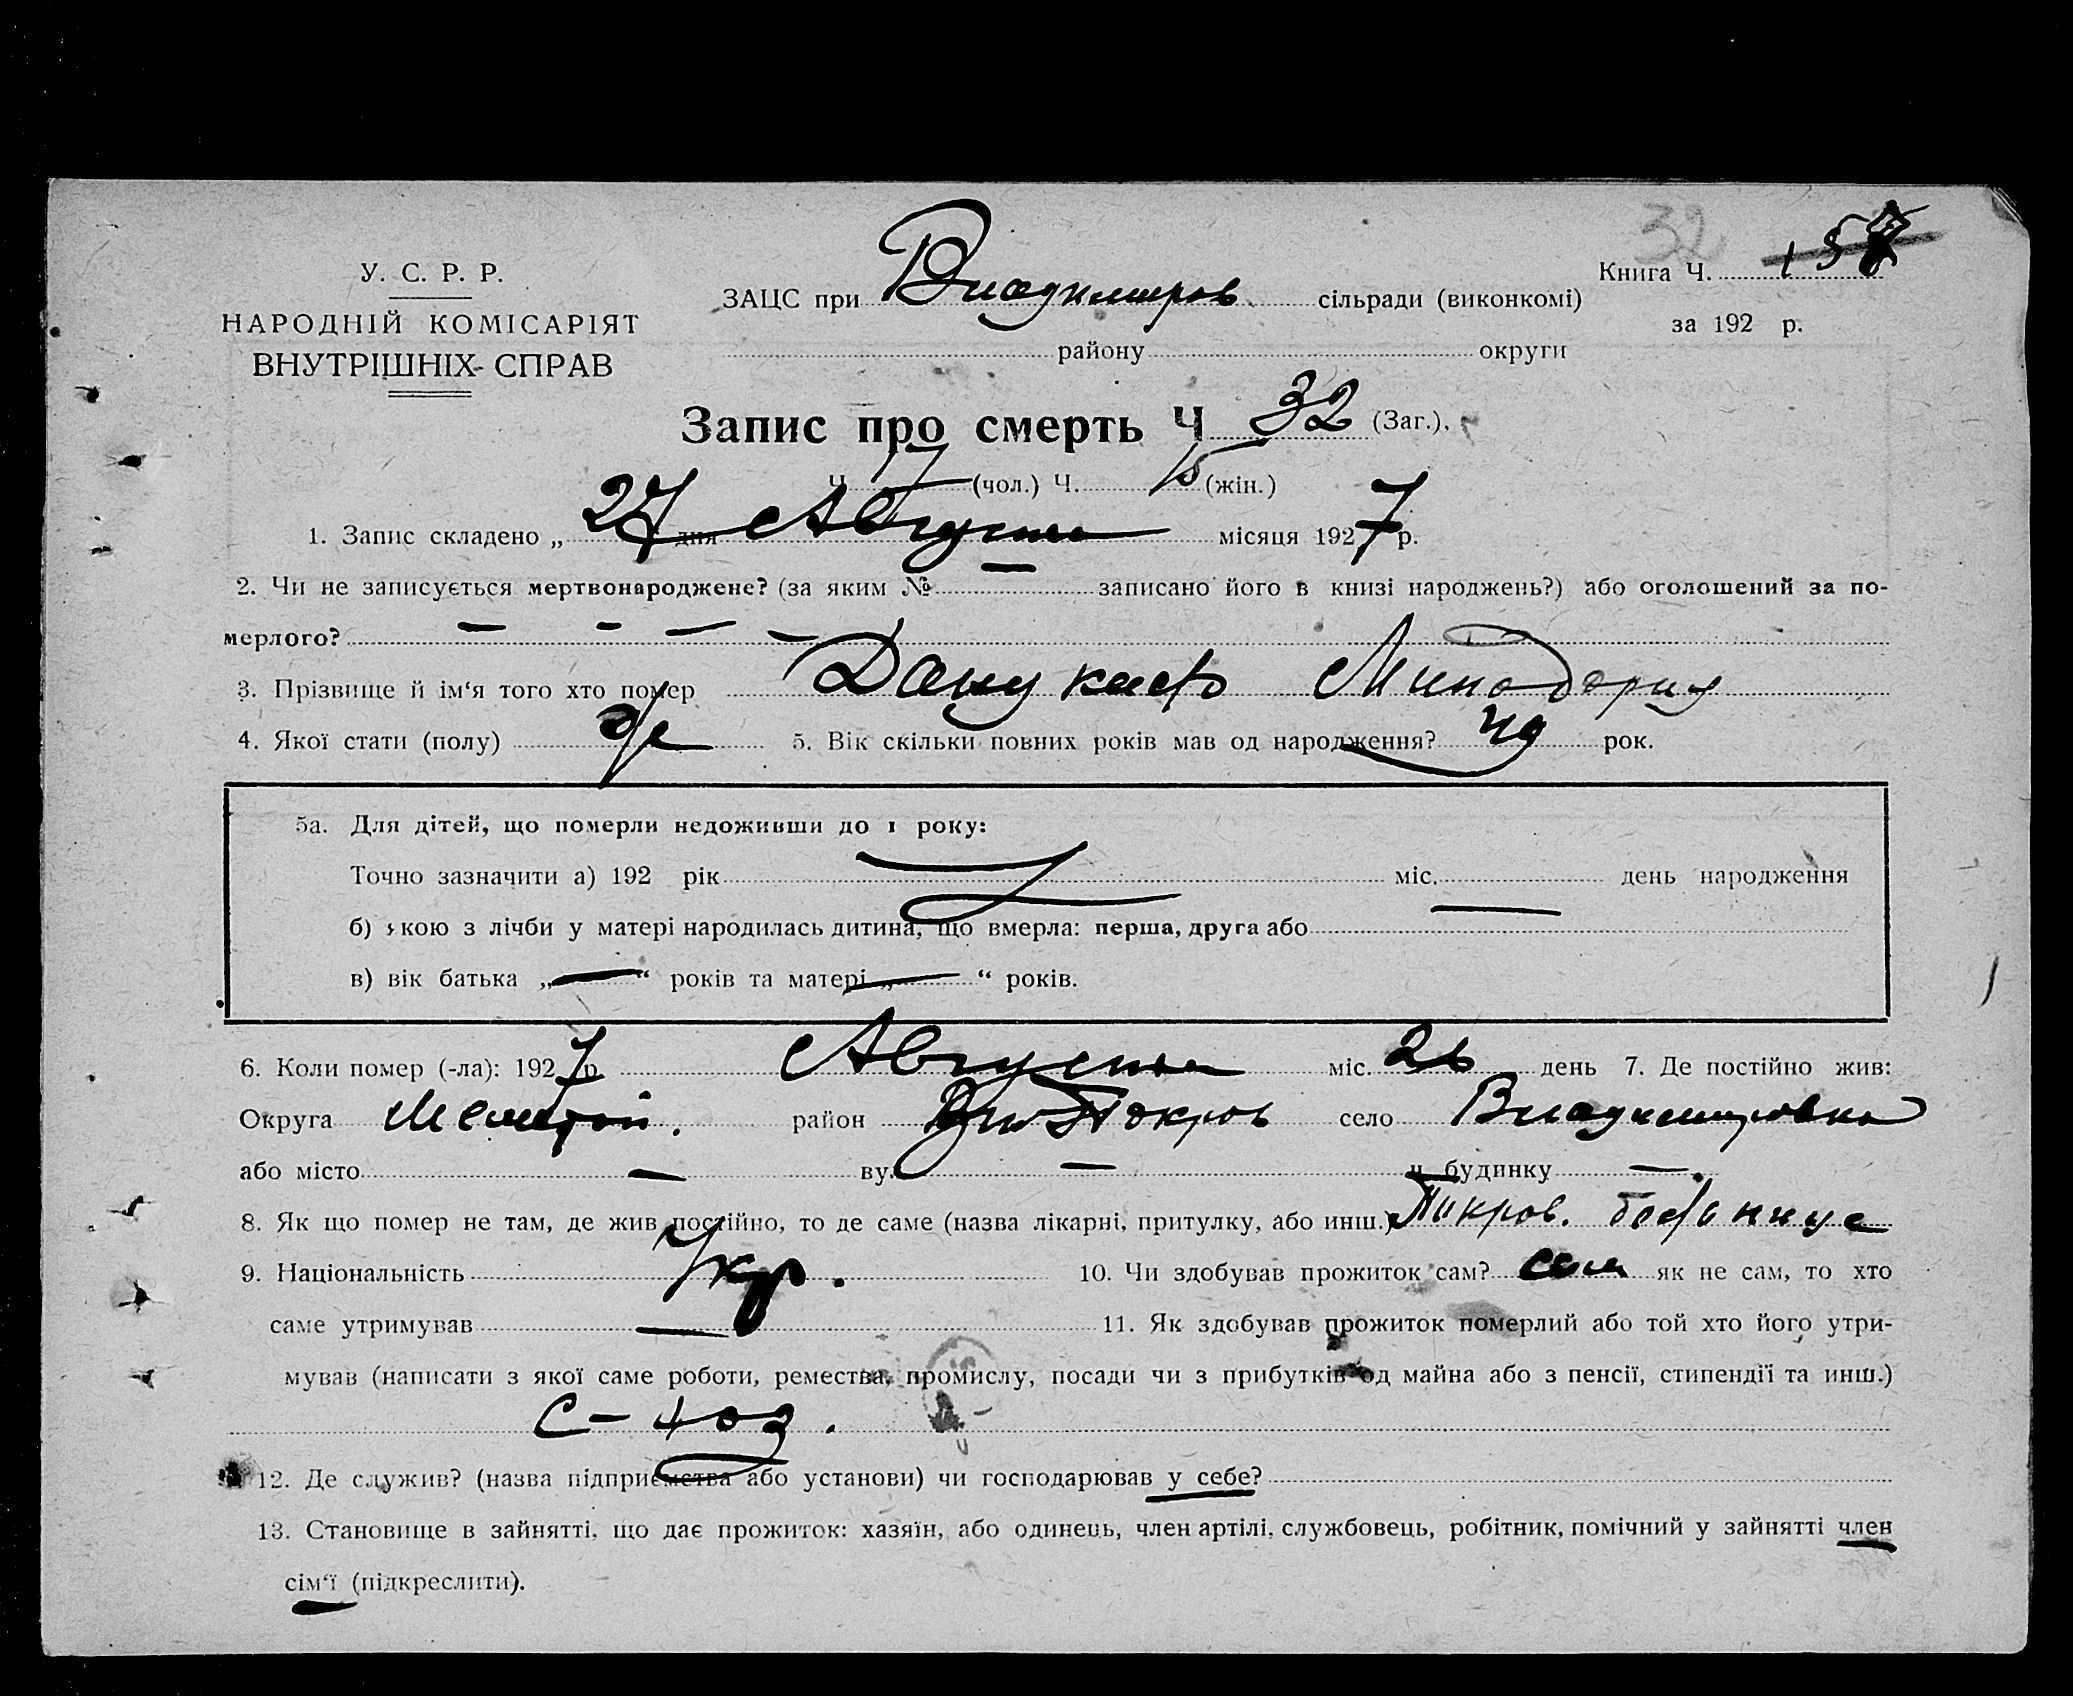 32
У. С. Р. Р.
НАРОДНІЙ КОМІСАРІЯТ
ВНУТРІШНІХ СПРАВ
Книга Ч. 158
за 192 р.
ЗАЦС при Владимиров сільради (виконкомі)
району округи
Запис про смерть Ч 32 (Заг.).
Ч. 17 (чол.) Ч. 15 (жін.)
1. Запис складено „ 27 дня Августа місяця 1927 р.
2. Чи не записується мертвонароджене? (за яким № — записано його в книзі народжень?) або оголошений за по-
мерлого? — — — —
3. Прізвище й ім‘я того хто помер
4. Якої стати (полу) 5. Вік скільки повних років мав од народження? рок.
5а. Для дітей, що померли недоживши до 1 року:
Точно зазначити а) 192 рік міс. день народження
б) якою з лічби у матері народилась дитина, що вмерла: перша, друга або
в) вік батька „—“ років та матері „—“ років.
6. Коли помер (-ла): 1927 р. Августа міс. 26 день 7. Де постійно жив:
Округа Мелітой. район село Владимировка
або місто — вул. — ч. будинку —.
8. Як що помер не там, де жив постійно, то де саме (назва лікарні, притулку, або инш.)
9. Національність Укр. 10. Чи здобував прожиток сам? сам як не сам, то хто
саме утримував — 11. Як здобував прожиток померлий або той хто його утри-
мував (написати з якої саме роботи, ремества, промислу, посади чи з прибутків од майна або з пенсії, стипендії та инш.)
С-хоз.
12. Де служив? (назва підприємства або установи) чи господарював у себе?
13. Становище в зайнятті, що дає прожиток: хазяїн, або одинець, член артілі, службовець, робітник, помічний у зайнятті член
сім‘ї (підкреслити).